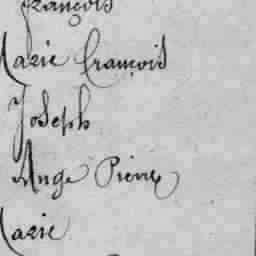 François
Marie François
Joseph
Ange Pierre
Marie